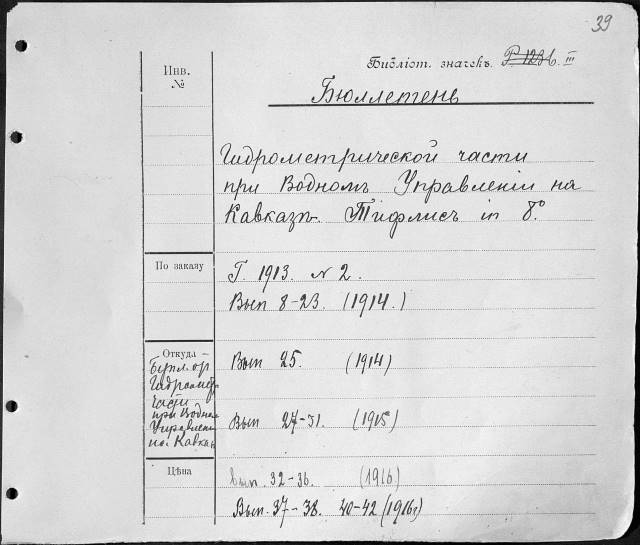 39
Инв.
№
Библіот. значекъ. Р. 123б. III
Бюллетень
Гидрометрической части
при Водномъ Управленіи на
Кавказѣ. Тифлисъ in 8°.
По заказу
Г. 1913. № 2.
Вып 8-23. (1914.)
Откуда —
Гидрометр
части
при Водном
Управлен
на Кавказ
Вып 25. (1914)
Вып 27-31. (1915)
Цѣна
Вып. 32-36. (1916)
Вып. 37-38. 40-42 (1916г)